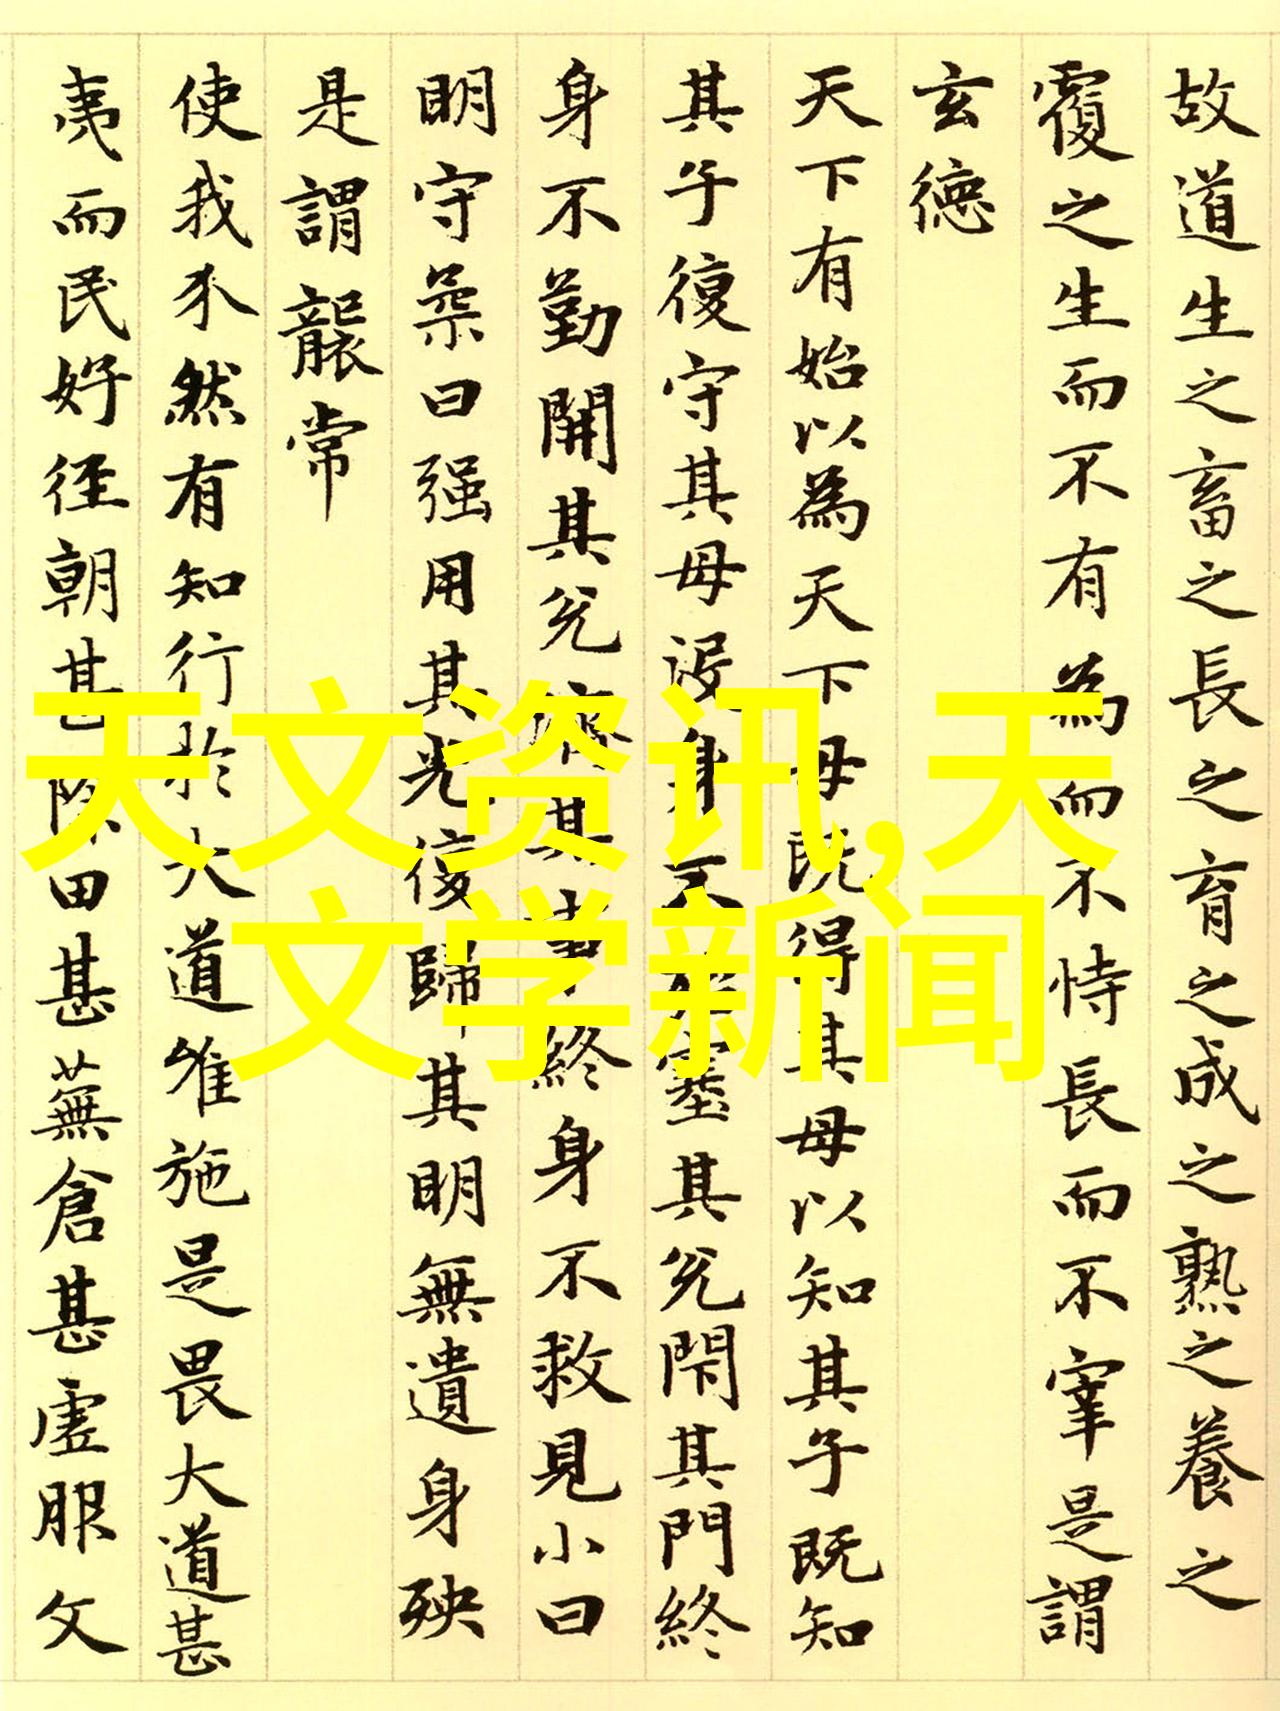 故道生之畜之長之育之成之熟之養之
覆之生而不有為而不恃長而不宰是謂
玄德
天下有始以為天下母既得其母以知其子既知
其子復守其母沒身不殆塞其兌閇其門終
身不勤開其兌濟其事終身不救見小曰
明守柔曰强用其光復歸其明無遺身殃
是謂襲常
使我不然有知行於大道唯施是畏大道甚
夷而民好徑朝甚除田甚蕪倉甚虛服文
天文资讯,天
文学新闻